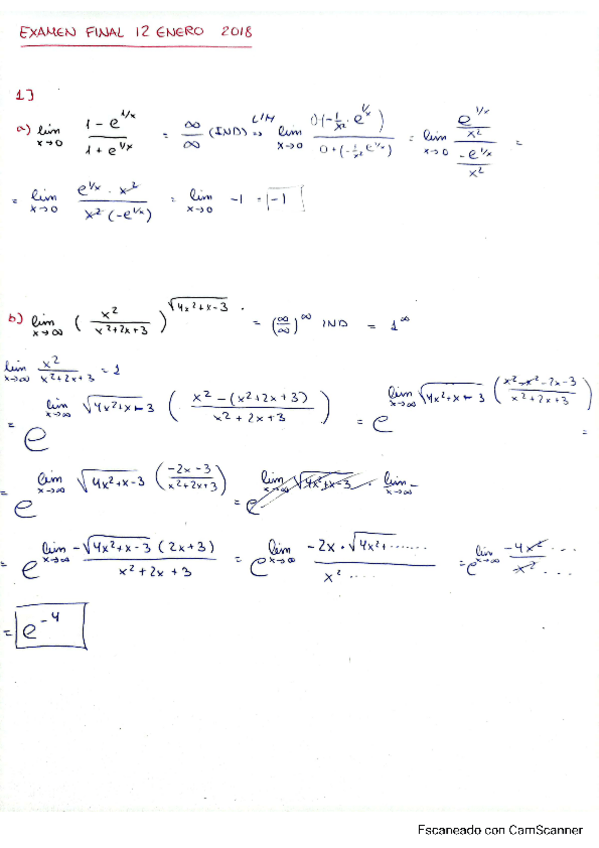 EXAMEN FINAL 12 ENERO 2018
1]
a) lim x→0 (1 - e^{1/x}) / (1 + e^{1/x}) = ∞/∞ (IND) ⇒ L'H lim x→0 (0(-1/x² · e^{1/x})) / (0 + (-1/x² e^{1/x})) = lim x→0 (e^{1/x}/x²) / (-e^{1/x}/x²) =
= lim x→0 (e^{1/x} · x²) / (x² (-e^{1/x})) = lim x→0 -1 = -1
b) lim x→∞ (x² / (x²+2x+3))^{√4x²+x-3} = (∞/∞)^∞ IND = 1^∞
lim x→∞ x² / (x²+2x+3) = 1
= e^{lim x→∞ √4x²+x-3 ((x² - (x²+2x+3)) / (x²+2x+3))} = e^{lim x→∞ √4x²+x-3 ((x²-x²-2x-3) / (x²+2x+3))} =
= e^{lim x→∞ √4x²+x-3 ((-2x-3) / (x²+2x+3))} = e^{lim x→∞ √4x²+x-3 · lim x→∞ -}
= e^{lim x→∞ (-√4x²+x-3 (2x+3)) / (x²+2x+3)} = e^{lim x→∞ (-2x·√4x²+......) / (x² ....)} = e^{lim x→∞ (-4x² ...) / (x² ...)}
= e^{-4}
Escaneado con CamScanner